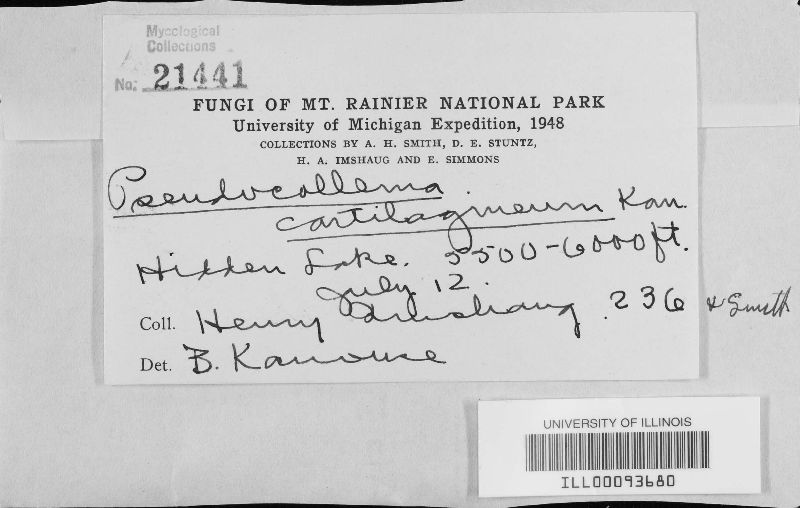 Mycological
Collections
No: 21441
FUNGI OF MT. RAINIER NATIONAL PARK
University of Michigan Expedition, 1948
COLLECTIONS BY A. H. SMITH, D. E. STUNTZ,
H. A. IMSHAUG AND E. SIMMONS
Pseudocollema
cartilagineum Kan.
Hidden Lake. 5500-6000 ft.
July 12.
Coll. Henry Imshaug 236 & Smith
Det. B. Kanouse
UNIVERSITY OF ILLINOIS
ILL00093680